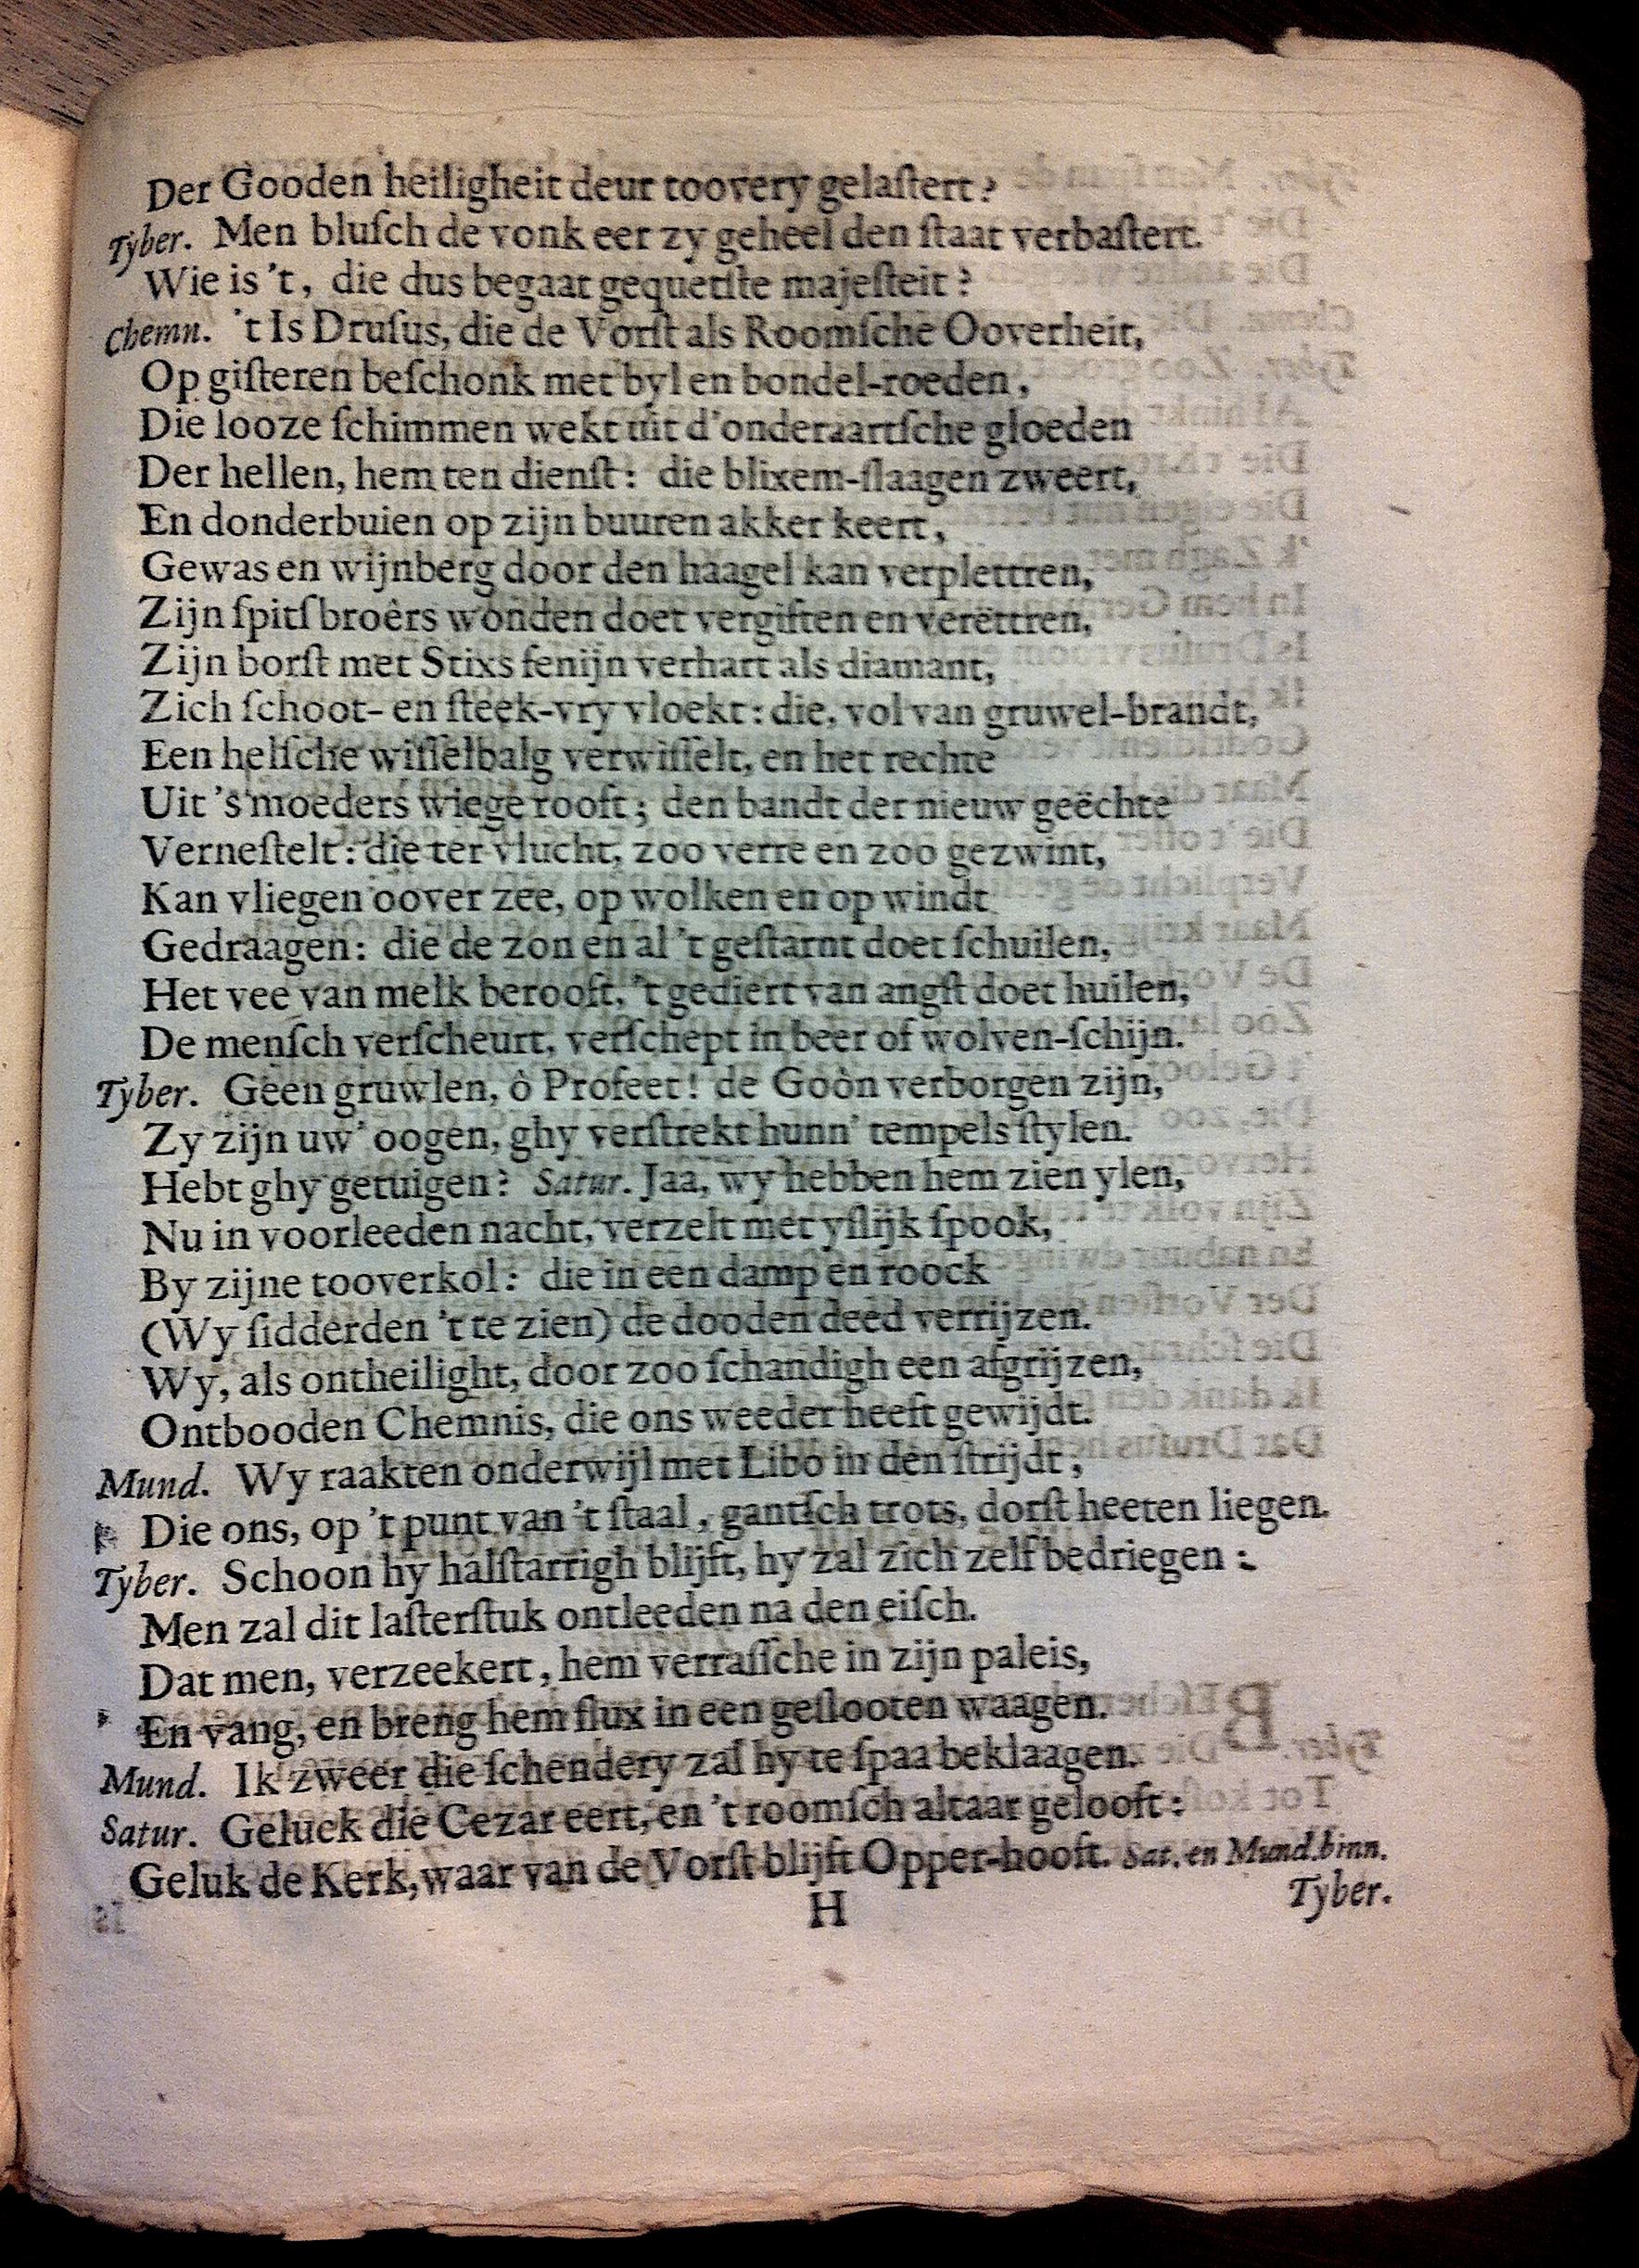 Der Gooden heiligheit deur toovery gelaſtert?
Tyber. Men bluſch de vonk eer zy geheel den ſtaat verbaſtert.
Wie is 't, die dus begaat gequetſte majeſteit?
Chemn. 't Is Druſus, die de Vorſt als Roomſche Ooverheit,
Op giſteren beſchonk met byl en bondel-roeden,
Die looze ſchimmen wekt uit d'onderaartſche gloeden
Der hellen, hem ten dienſt: die blixem-ſlaagen zweert,
En donderbuien op zijn buuren akker keert,
Gewas en wijnberg door den haagel kan verplettren,
Zijn ſpitſbroêrs wonden doet vergiften en verëttren,
Zijn borſt met Stixs fenijn verhart als diamant,
Zich ſchoot- en ſteek-vry vloekt: die, vol van gruwel-brandt,
Een helſche wiſſelbalg verwiſſelt, en het rechte
Uit 's moeders wiege rooft; den bandt der nieuw geëchte
Verneſtelt: die ter vlucht, zoo verre en zoo gezwint,
Kan vliegen oover zee, op wolken en op windt
Gedraagen: die de zon en al 't geſtarnt doet ſchuilen,
Het vee van melk berooft, 't gediert van angſt doet huilen,
De menſch verſcheurt, verſchept in beer of wolven-ſchijn.
Tyber. Geen gruwlen, ò Profeet! de Goòn verborgen zijn,
Zy zijn uw' oogen, ghy verſtrekt hunn' tempels ſtylen.
Hebt ghy getuigen? Satur. Jaa, wy hebben hem zien ylen,
Nu in voorleeden nacht, verzelt met yſlijk ſpook,
By zijne tooverkol: die in een damp en roock
(Wy ſidderden 't te zien) de dooden deed verrijzen.
Wy, als ontheilight, door zoo ſchandigh een afgrijzen,
Ontbooden Chemnis, die ons weeder heeft gewijdt.
Mund. Wy raakten onderwijl met Libo in den ſtrijdt,
Die ons, op 't punt van 't ſtaal, gantſch trots, dorſt heeten liegen.
Tyber. Schoon hy halſtarrigh blijft, hy zal zich zelf bedriegen:
Men zal dit laſterſtuk ontleeden na den eiſch.
Dat men, verzeekert, hem verraſſche in zijn paleis,
En vang, en breng hem flux in een geſlooten waagen.
Mund. Ik zweer die ſchendery zal hy te ſpaa beklaagen.
Satur. Geluck die Cezar eert, en 't roomſch altaar gelooft:
Geluk de Kerk, waar van de Vorſt blijft Opper-hooft. Sat. en Mund. binn.
H Tyber.